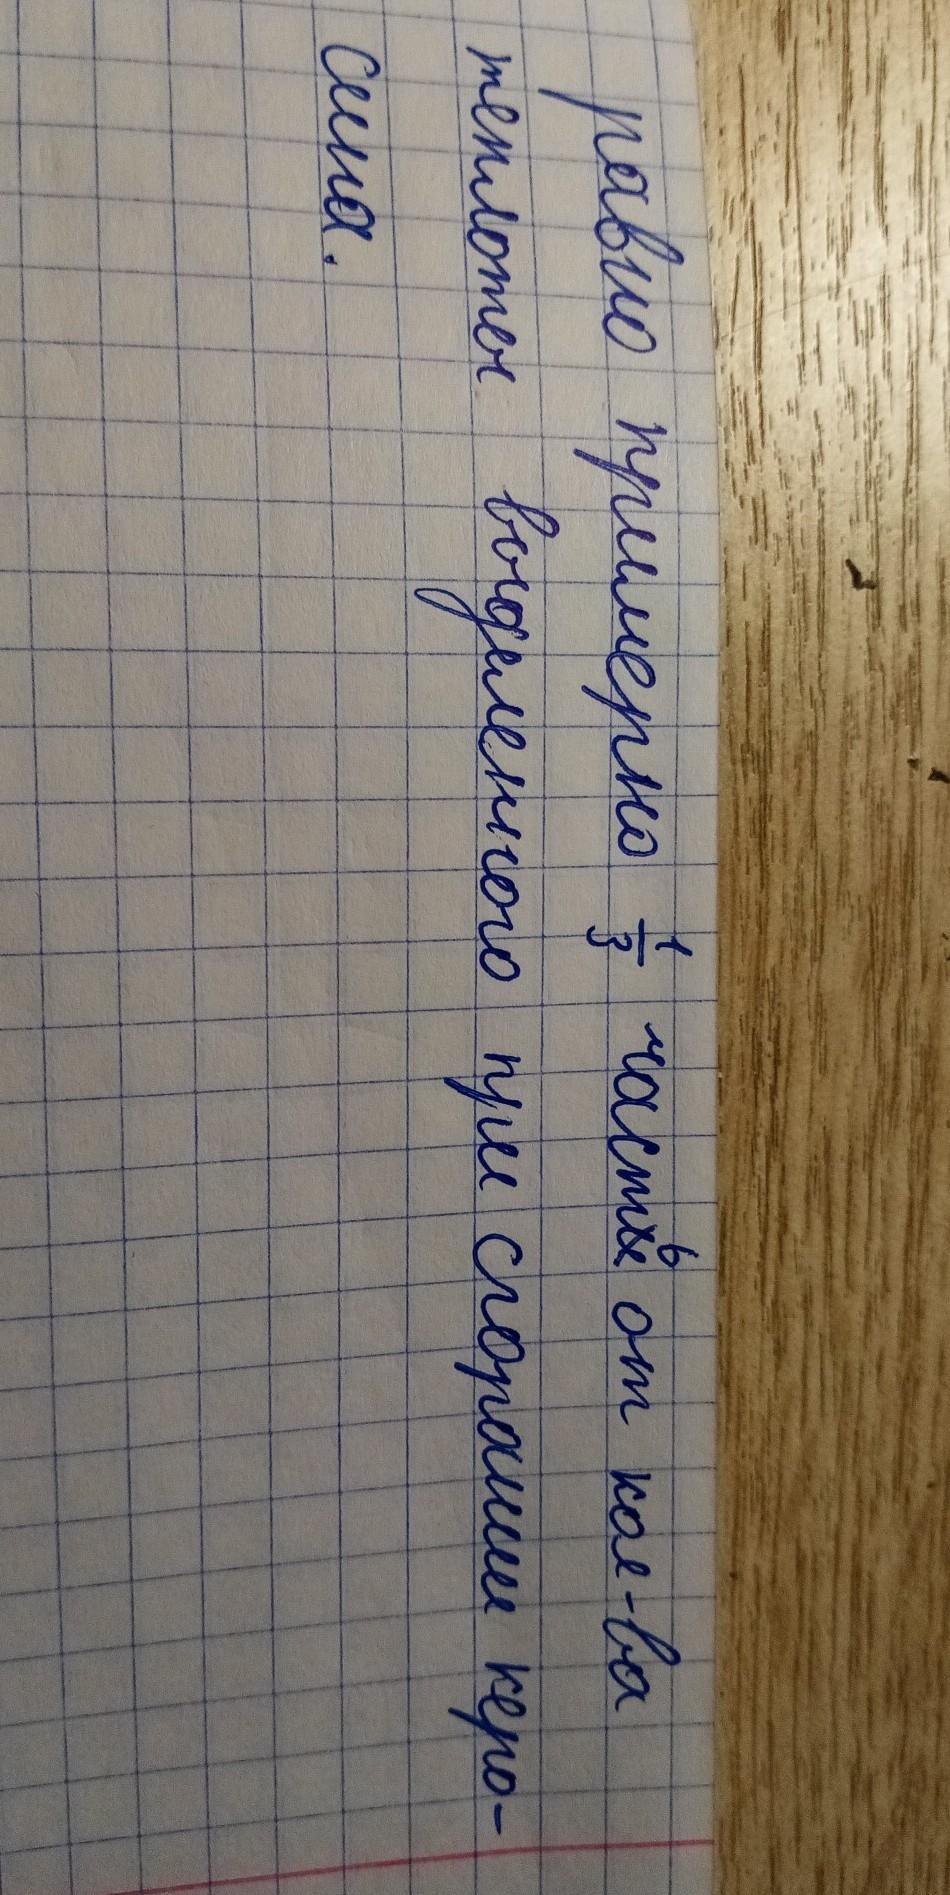 равно примерно 1/3 часть от кол-ва
теплоты выделенного при сгорании керо-
сина.